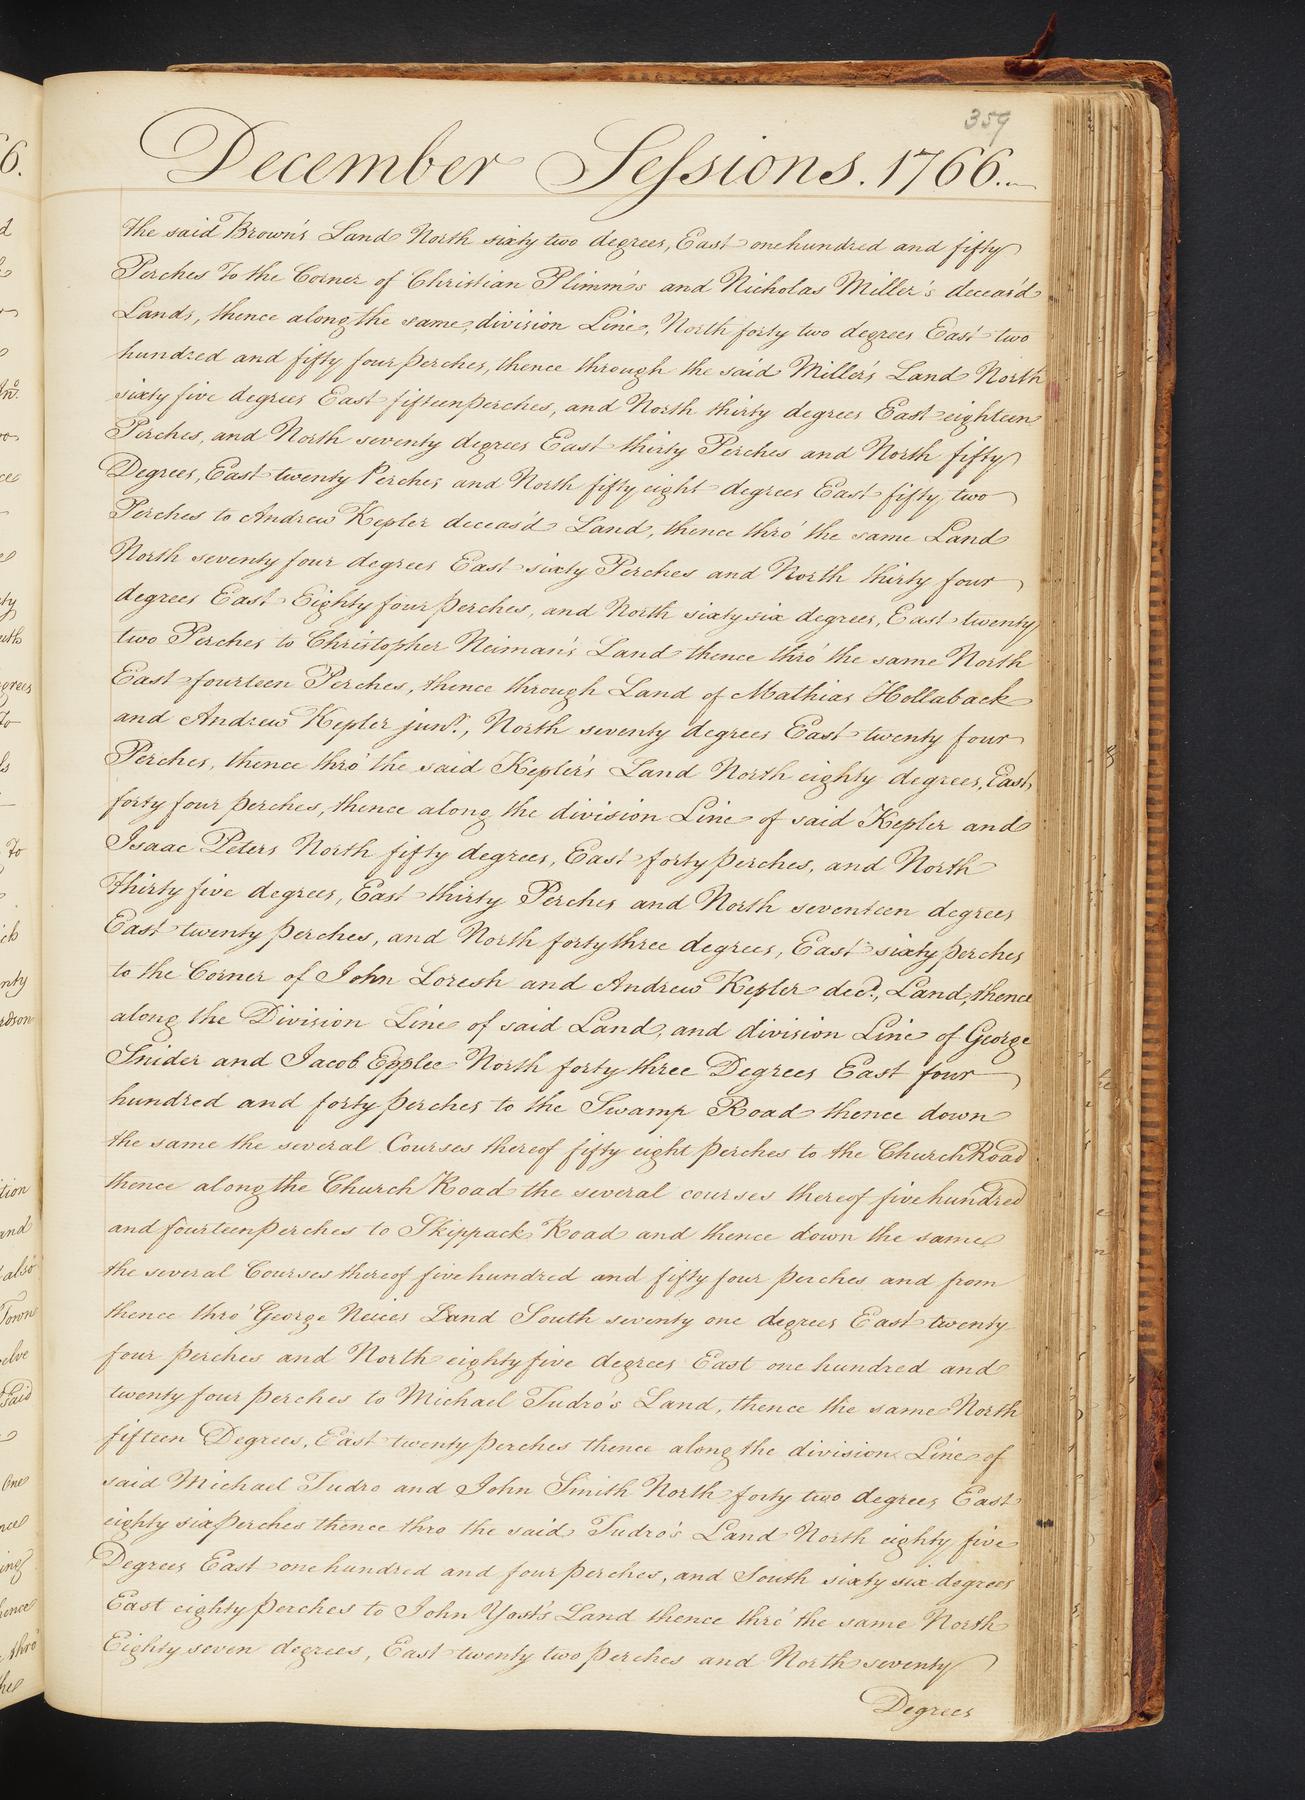 359
December Sessions. 1766.
the said Brown's Land North sixty two degrees, East one hundred and fifty
Perches To the Corner of Christian Plimm's and Nicholas Miller's deceas'd
Lands, thence along the same, division Line, North forty two degrees East two
hundred and fifty four perches, thence through the said Millers Land North
sixty five degrees East fifteen perches, and North thirty degrees East eighteen
Perches, and North seventy degrees East thirty Perches and North fifty
Degrees, East twenty Perches and North fifty eight degrees East fifty two
Perches to Andrew Kepler deceas'd Land, thence thro' the same Land
North seventy four degrees East sixty Perches and North thirty four
degrees East Eighty four perches, and North sixty six degrees, East twenty
two Perches to Christopher Neiman's Land thence thro' the same North
East fourteen Perches, thence through Land of Mathias Hollaback
and Andrew Kepler junr., North seventy degrees East twenty four
Perches, thence thro' the said Kepler's Land North eighty degrees, East
forty four perches, thence along the division Line of said Kepler and
Isaac Peters North fifty degrees, East forty perches, and North
thirty five degrees, East thirty Perches and North seventeen degrees
East twenty perches, and North forty three degrees, East sixty perches
to the Corner of John Loresh and Andrew Kepler decd., Land, thence
along the Division Line of said Land, and division Line of George
Snider and Jacob Epplee North forty three Degrees East four
hundred and forty perches to the Swamp Road thence down
the same the several Courses thereof fifty eight perches to the Church Road
thence along the Church Road the several courses thereof five hundred
and fourteen perches to Skippack Road and thence down the same
the several Courses thereof five hundred and fifty four perches and from
thence thro' George Neices Land South seventy one degrees East twenty
four perches and North eighty five degrees East one hundred and
twenty four perches to Michael Tudro's Land, thence the same North
fifteen Degrees, East twenty perches thence along the division Line of
said Michael Tudro and John Smith North forty two degrees East
eighty six perches thence thro the said Tudro's Land North eighty five
Degrees East one hundred and four perches, and South sixty six degrees
East eighty perches to John Yost's Land thence thro' the same North
Eighty seven degrees, East twenty two perches and North seventy
Degrees